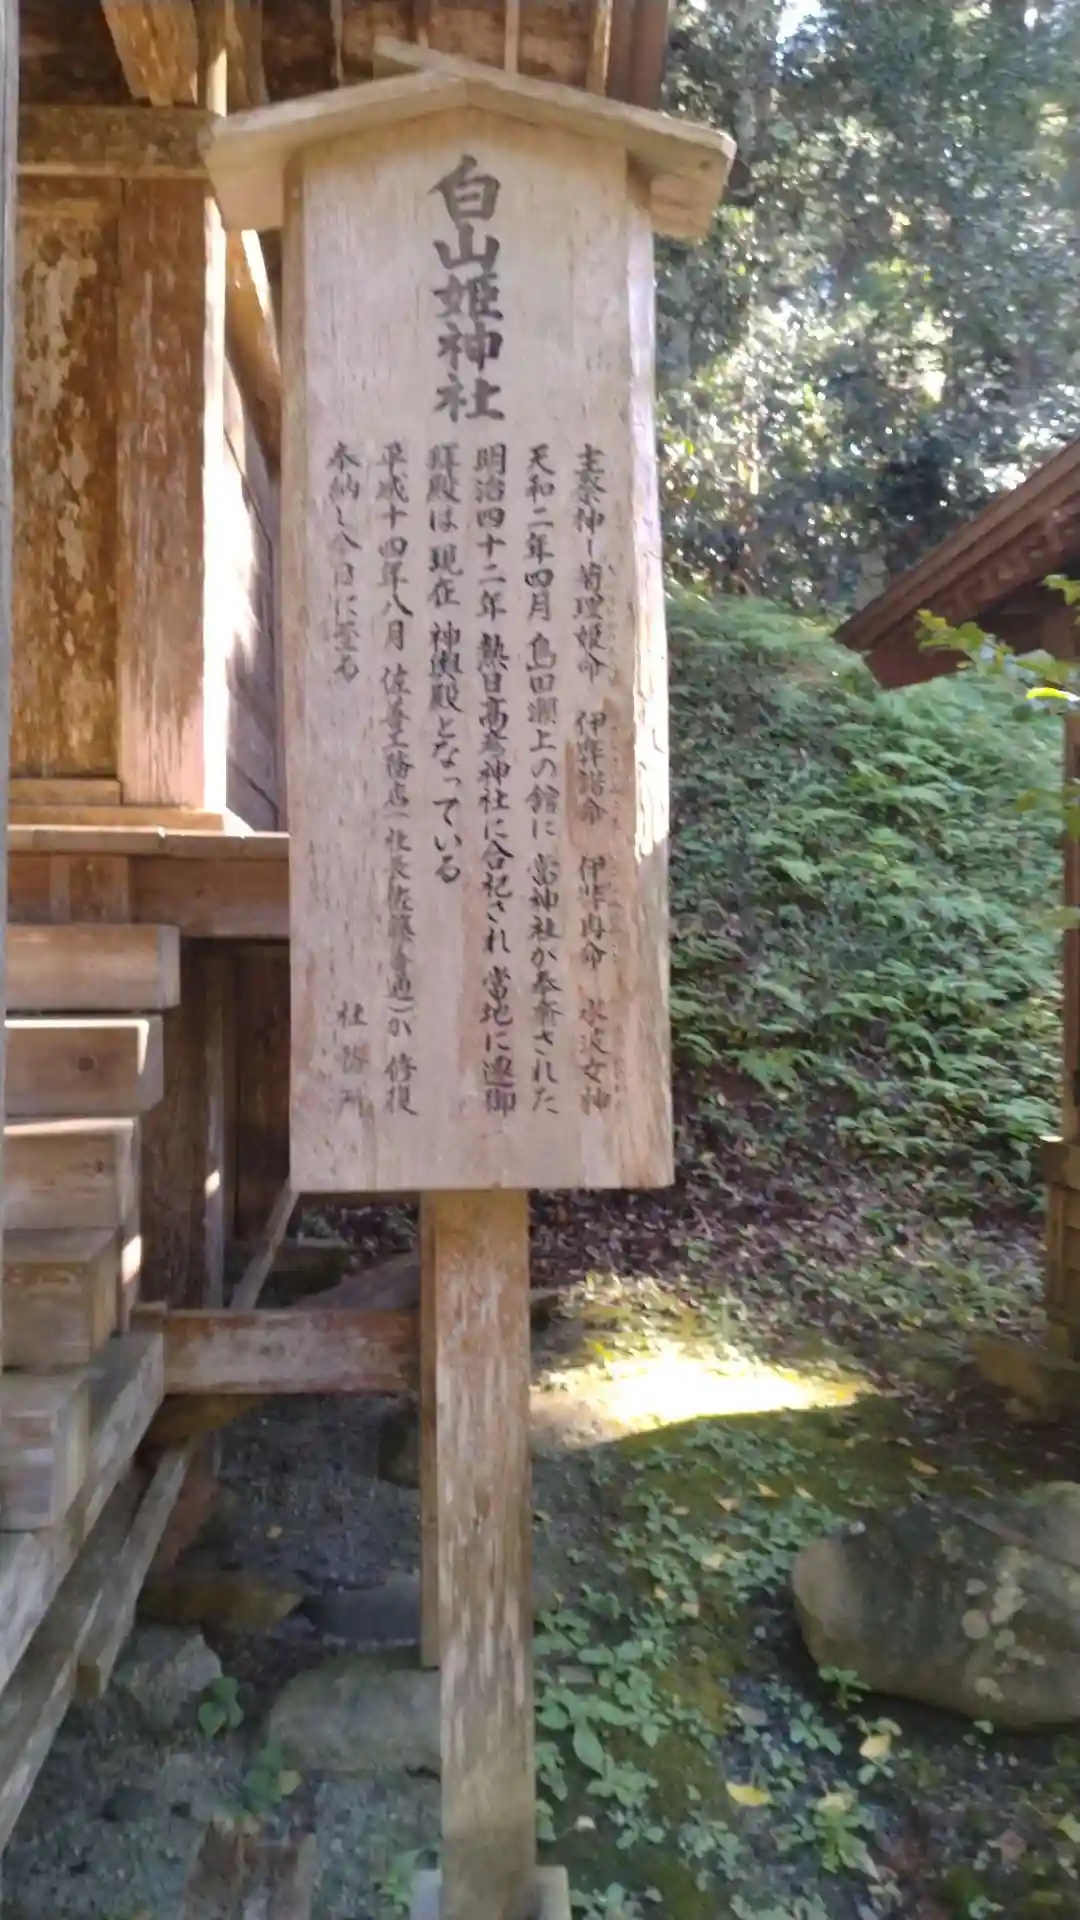 白山姫神社
主祭神 菊理姫命 伊弉諾命 伊弉冉命 水波女神
天和二年四月 島田瀬上の館に 當神社が奉斎された
明治四十二年 熱日高彦神社に合祀され 當地に遷御
拝殿は 現在 神輿殿となっている
平成十四年八月 佐藤工務店(社長佐藤 通)が 修復
奉納し今日に至る
社務所